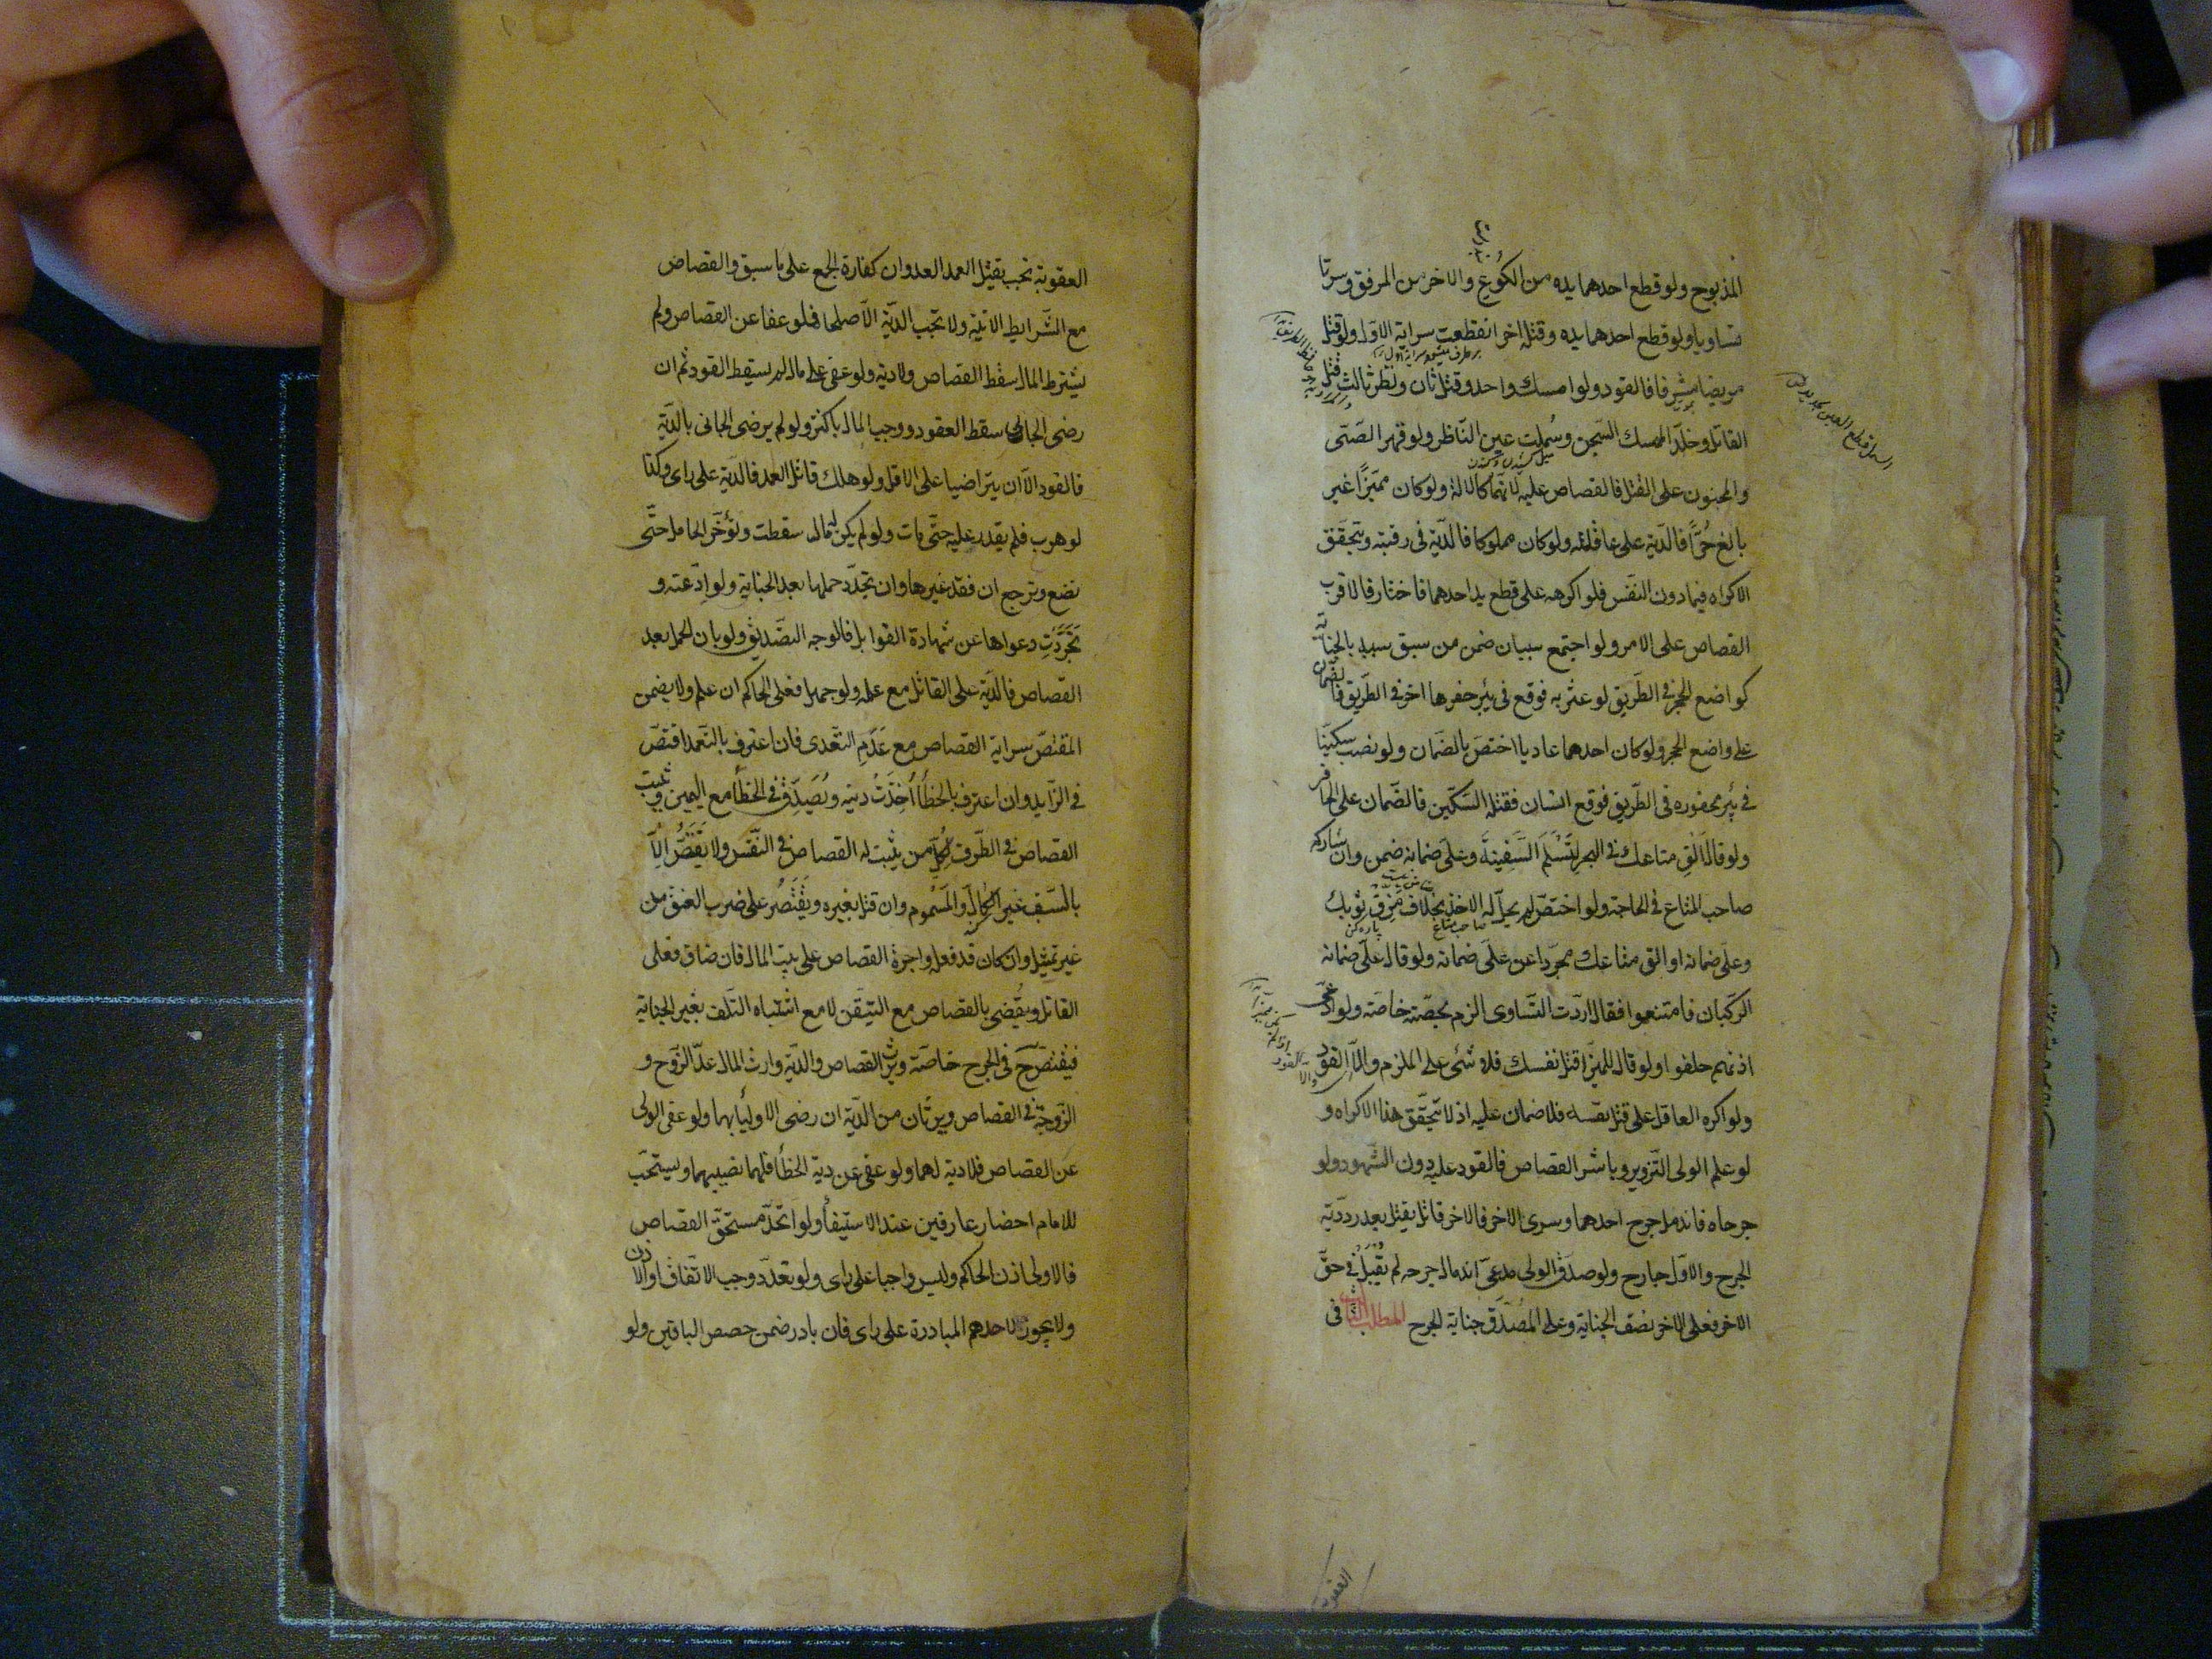 المذبوح ولو قطع احدهما يده من الكوع والاخر من المرفق وسرتا
تساويا ولو قطع احدهما يده وقتله اخر انقطعت سراية الاول ولو قتل
مريضا مشرفا فالقود ولو امسك واحد وقتل ثان ونظر ثالث قتل
القاتل وخلد الممسك السجن وسملت عين الناظر ولو قهر الصبى
والمجنون على القتل فالقصاص عليه لانهما كالالة ولو كان مميزا غير
بالغ حرا فالدية على عاقلته ولو كان مملوكا فالدية فى رقبته ويتحقق
الاكراه فيما دون النفس فلو اكرهه على قطع يد احدهما فاختار فالاقرب
القصاص على الامر ولو اجتمع سببان ضمن من سبق سببه بالجناية
كواضع الحجر فى الطريق لو عثر به فوقع فى بئر حفرها اخر فى الطريق فالضمان
على واضع الحجر ولو كان احدهما عاديا اختص بالضمان ولو نصب سكينا
فى بئر محفوره فى الطريق فوقع انسان فقتله السكين فالضمان على الحافر
ولو قال الق متاعك فى البحر لتسلم السفينة وعلى ضمانه ضمن وان شاركه
صاحب المتاع فى الحاجة ولو اختص لم يحل له الاخذ بخلاف مزق ثوبك
وعلى ضمانه او الق متاعك مجردا عن على ضمانه ولو قال على ضمانه
الركبان فامتنعوا فقال اردت التساوى الزم بحصته خاصة ولو ادعى
اذنهم حلفوا ولو قال للمميز اقتل نفسك فلا شئ على الملزم والا القود
ولو اكره العاقل على قتل نفسه فلا ضمان عليه اذ لا يتحقق هذا الاكراه و
لو علم الولى التزوير وباشر القصاص فالقود عليه دون الشهود ولو
جرحاه فاندمل جرح احدهما وسرى الاخر فالاخر قاتل يقتل بعد رد دية
الجرح والاول جارح ولو صدق الولى مدعى اندمال جرحه لم يقبل فى حق
الاخر فعلى الاخر نصف الجناية وعلى المصدق جناية الجرح المطلب الثالث فى
العقوبة
العقوبة تجب بقتل العمد العدوان كفارة الجمع على ما سبق والقصاص
مع الشرايط الاتية ولا تجب الدية الا صلحا فلو عفا عن القصاص ولم
يشترط المال سقط القصاص ولا دية ولو عفى على مال لم يسقط القود ثم ان
رضى الجانى سقط القود ووجب المال باكثر ولو لم يرض الجانى بالدية
فالقود الا ان يتراضيا على الاقل ولو هلك قاتل العمد فالدية على راى وكذا
لو هرب فلم يقدر عليه حتى مات ولو لم يكن له مال سقطت وتؤخر الحامل حتى
تضع وترجع ان فقد غيرها وان تجدد حملها بعد الجناية ولو ادعته و
تجردت دعواها عن شهادة القوابل فالوجه التصديق ولو بان الحمل بعد
القصاص فالدية على القاتل مع علمه ولو جهل فعلى الحاكم ان علم ولا يضمن
المقتص سراية القصاص مع عدم التعدى فان اعترف بالتعمد اقتص
فى الزايد وان اعترف بالخطأ اخذت ديته ويصدق فى الخطأ مع اليمين ويثبت
القصاص فى الطرف لكل من يثبت له القصاص فى النفس ولا يقتص الا
بالسيف غير الكال والمسموم وان قتل بغيره ويقتصر على ضرب العنق من
غير تمثيل وان كان قد فعله واجرة القصاص على بيت المال فان ضاق فعلى
القاتل ويقضى بالقصاص مع التيقن لا مع اشتباه التلف بغير الجناية
فيقتص فى الجرح خاصة ويرث القصاص والدية وارث المال عدا الزوج و
الزوجة فى القصاص ويرثان من الدية ان رضى الاولياء بها ولو عفى الولى
عن القصاص فلا دية لهما ولو عفى عن دية الخطأ فلهما نصيبهما ويستحب
للامام احضار عارفين عند الاستيفاء ولو اتحد مستحق القصاص
فالاولى اذن الحاكم وليس واجبا على راى ولو تعدد وجب الاتفاق او الاذن
ولا يجوز لاحدهم المبادرة على راى فان بادر ضمن حصص الباقين ولو